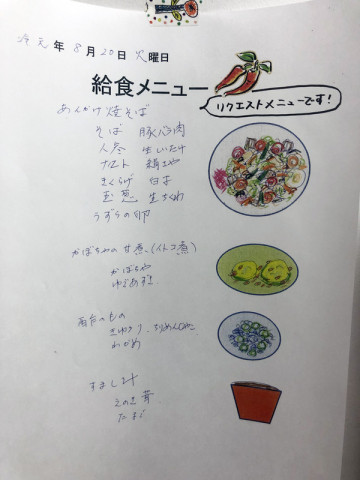 令元年 8月20日 火曜日
給食メニュー
リクエストメニューです！
あんかけ焼そば
そば 豚バラ肉
人参 生いたけ
ナルト 絹さや
きくらげ 白菜
玉葱 生ちくわ
うずらの卵
かぼちゃの甘煮（イトコ煮）
かぼちゃ
ゆであずき
酢のもの
きゅうり、ちりめんじゃこ
わかめ
すまし汁
えのき茸
たまご